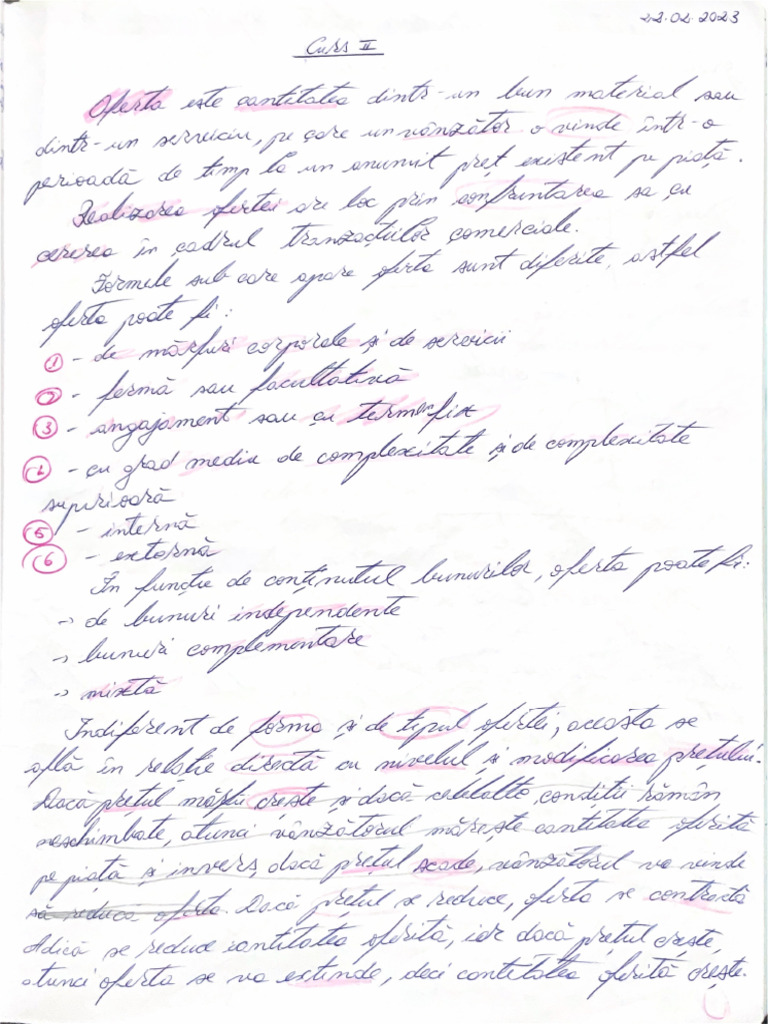 22.02.2023
Curs II
Oferta este cantitatea dintr-un bun material sau
dintr-un serviciu, pe care un vânzător o vinde într-o
perioadă de timp la un anumit preț existent pe piață.
Realizarea ofertei are loc prin confruntarea sa cu
cererea în cadrul tranzacțiilor comerciale.
Formele sub care apare oferta sunt diferite, astfel
oferta poate fi:
1 - de mărfuri corporale și de servicii
2 - fermă sau facultativă
3 - angajament sau cu termen fix
4 - cu grad mediu de complexitate și de complexitate
superioară
5 - internă
6 - externă
În funcție de conținutul bunurilor, oferta poate fi:
→ de bunuri independente
→ bunuri complementare
→ mixtă
Indiferent de forma și de tipul ofertei, aceasta se
află în relație directă cu nivelul și modificarea prețului.
Dacă prețul mărfii crește și dacă celelalte condiții rămân
neschimbate, atunci vânzătorul mărește cantitatea oferită
pe piață și invers, dacă prețul scade, vânzătorul va vinde
să reducă oferta. Dacă prețul se reduce, oferta se contractă
Adică se reduce cantitatea oferită, iar dacă prețul crește,
atunci oferta se va extinde, deci cantitatea oferită crește.